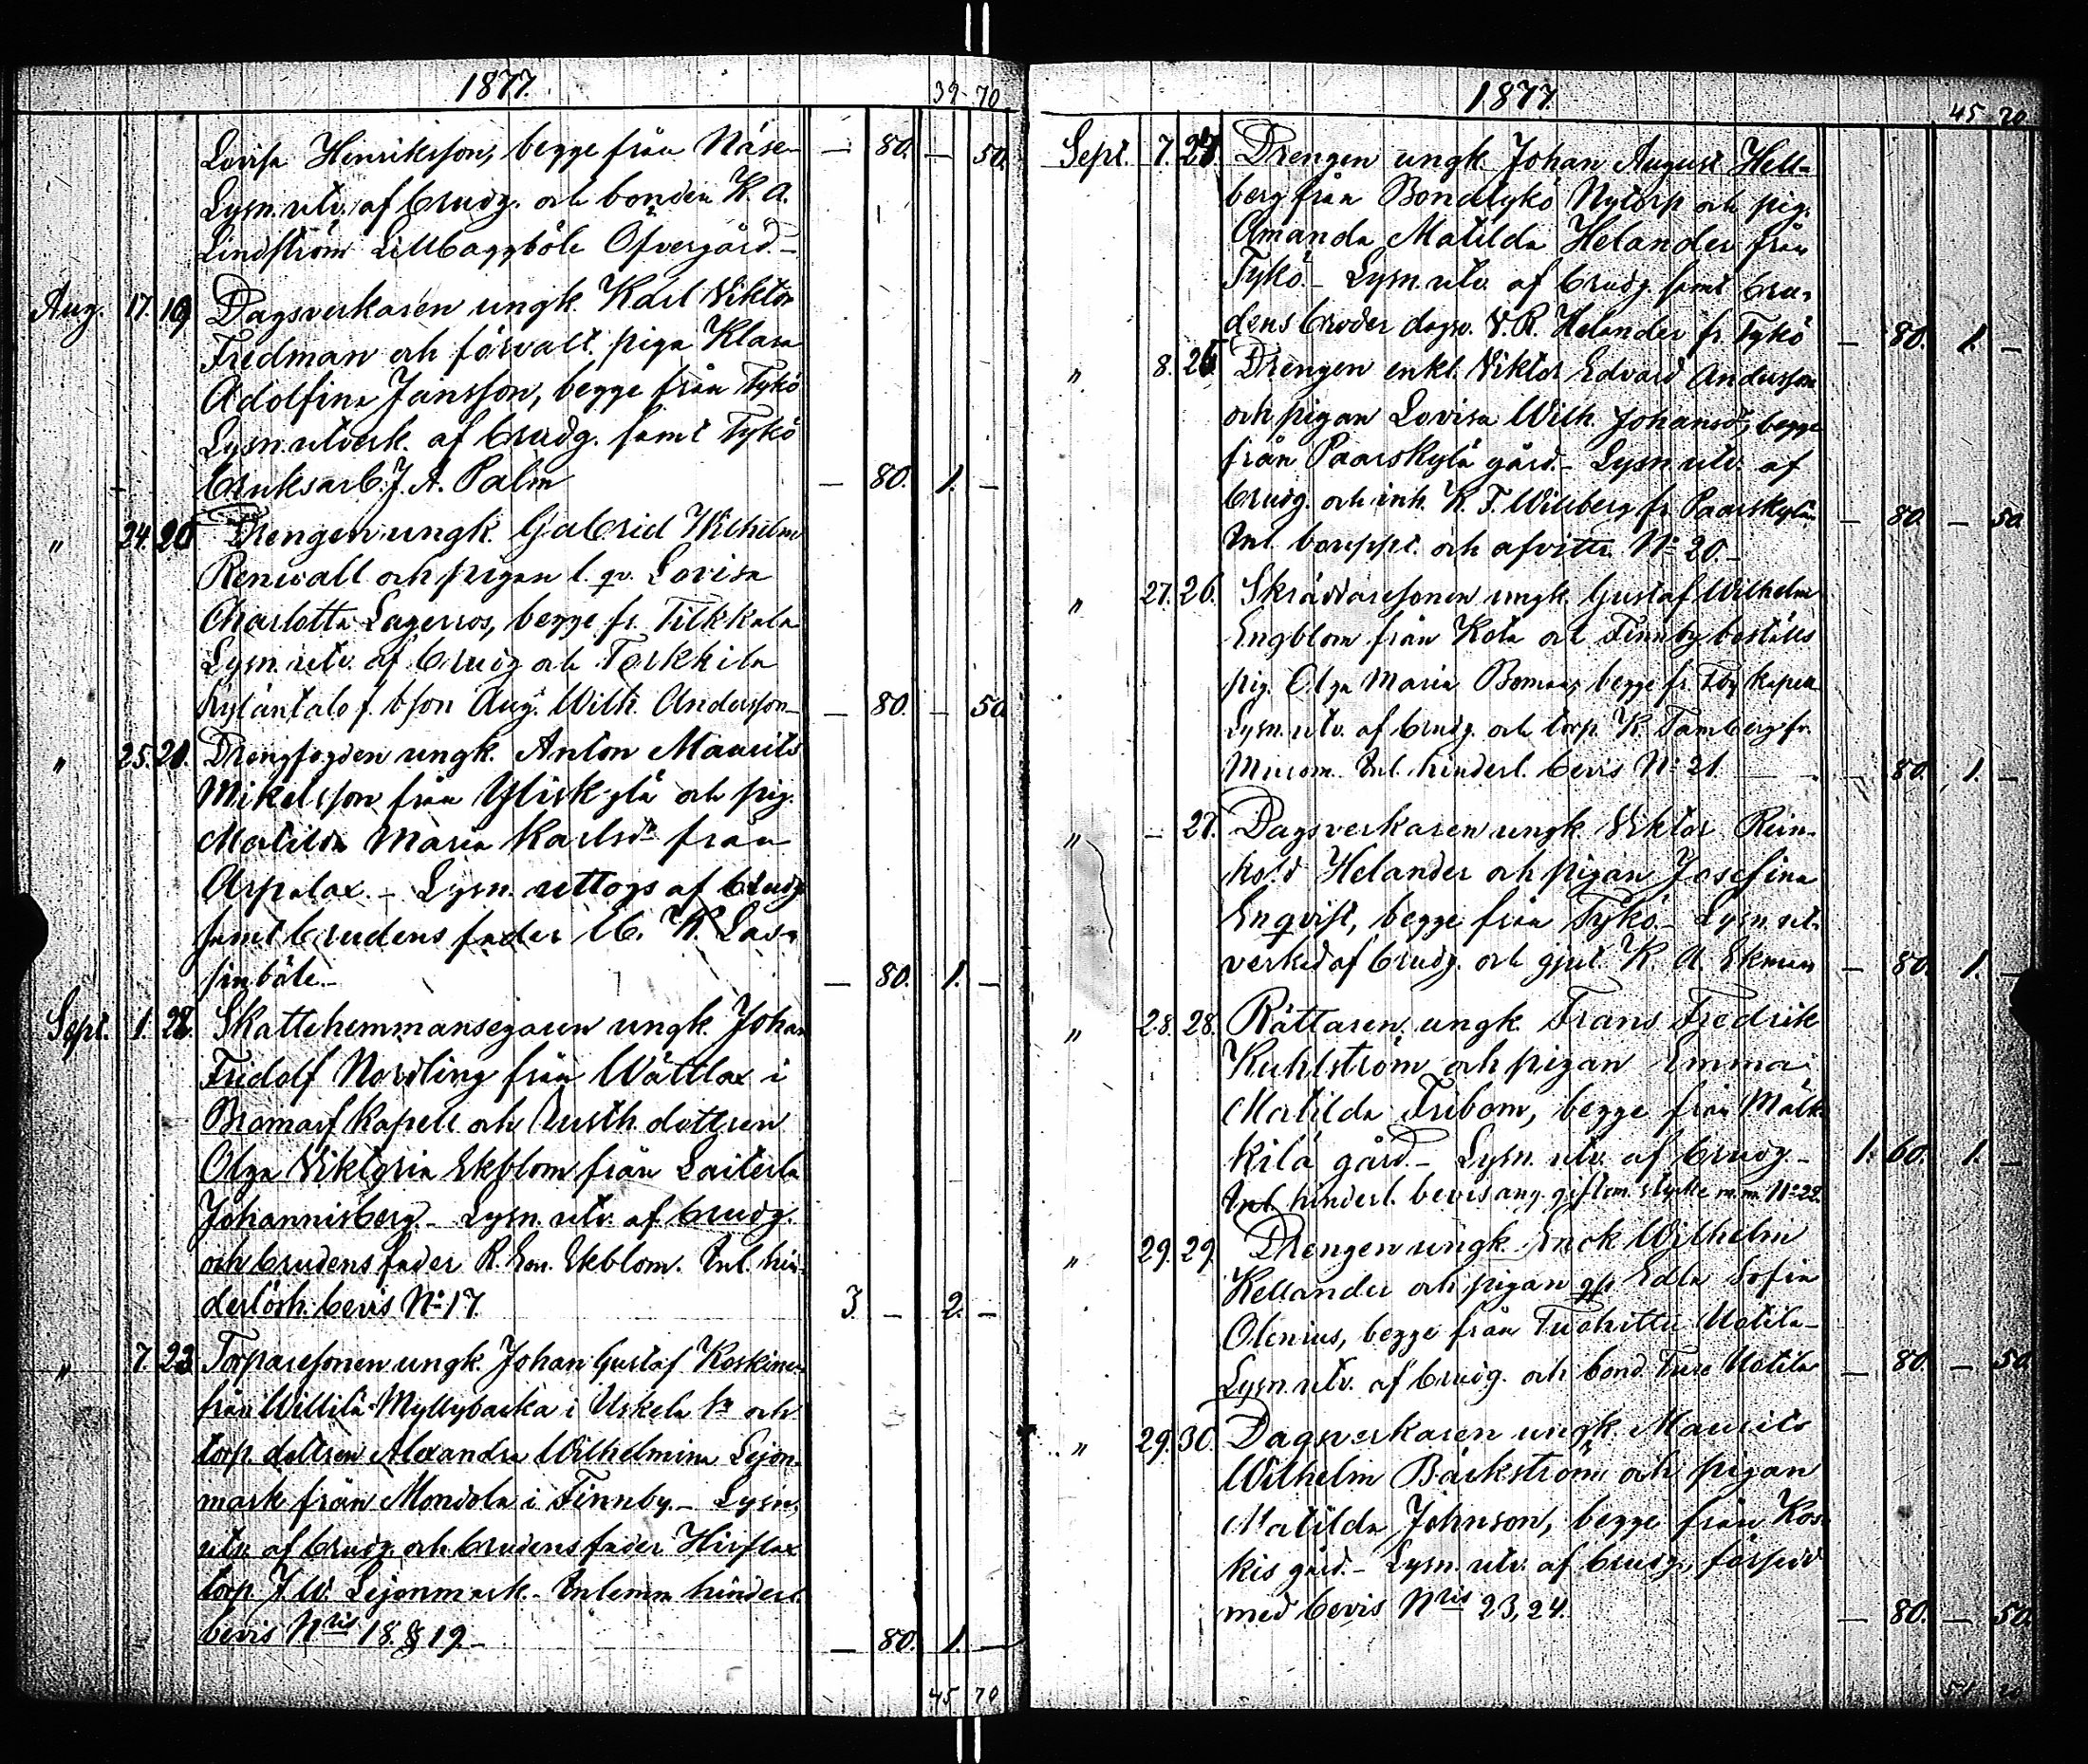 1877.
39 70
Lovisa Henriksson, begge från Näse- — 80. — 50.
Lysn. utv. af brudg. och bonden K. A.
Lindström Lillbaggböle Öfvergård.—
Aug. 17. 19 Dagsverkaren ungk. Karl Viktor
Fredman och förvalt. piga Klara
Adolfina Jansson, begge från Tykö
Lysn. utverk. af brudg. samt Tykö
bruksarb. J. A. Palm — 80. 1. —
" 24. 20 Drengen ungk. Gabriel Wilhelm
Renwall och pigan l. qv. Lovisa
Charlotta Lagerros, begge fr.
Lysn. utv. af brudg och
Kyläntalo f. bson Aug. Wilh. Andersson — 80. — 50
" 25. 21. Drengfogden ungk. Anton Maurits
Mikelsson från Yliskylä och pig.
Matilda Maria Karlsdr från
Arpalax. — Lysn. uttogs af brudg
samt brudens fader K.
böle.— — 80. 1. —
Sept. 1. 22. Skattehemmansegaren ungk. Johan
Fridolf Nordling från Wättlax i
Bromarf Kapell och rusth. dottren
Olga Viktoria Ekblom från Laiterla
Johannisberg.— Lysn. utv. af brudg.
och brudens fader R. Em. Ekblom. Inl. hin-
derlösh. bevis No 17. 3. — 2. —
" 7. 23 Torparesonen ungk. Johan Gustaf Koskinen
från Willilä Myllybacka i Uskela sn och
torp. dottren Alexandra Wilhelmina Lejon-
mark från Mondola i Finnby.— Lysn.
utv. af brudg. och brudens fader
torp J. W. Lejonmark.— Inlemn hinderl.
bevis Nris 18. & 19.— — 80. 1. —
45 70
1877
45 70
Sept. 7. 24. Drengen ungk. Johan August Hell-
berg från Bondtykö Nytorp och pig.
Amanda Matilda Helander från
Tykö.— Lysn. utv. af brudg. samt bru-
dens broder dagsv. V. R. Helander fr. Tykö — 80. 1. —
" 8. 25 Drengen enkl. Viktor Edvard Andersson
och pigan Lovisa Wilh. Johansdr, begge
från Paarskylä gård.— Lysn. utv. af
brudg. och inh. K. F. Willberg fr. Paarskylä. — 80. — 50
Inl. bouppt. och afvittr. No 20.—
" 27. 26. Skräddaresonen ungk. Gustaf Wilhelm
Engblom från Kota och Finnby beställs
pig. Olga Maria Boman, begge fr. Fby Kapell
Lysn. utv. af brudg. och torp. K. Tamberg fr.
Inl. hinderl. bevis No 21. — 80. 1. —
" — 27. Dagsverkaren ungk. Viktor Rein-
hold Helander och pigan Josefina
Enqvist, begge från Tykö.— Lysn. ut-
verkad af brudg. och gjut. K. A. Ekman — 80. 1. —
" 28. 28. Rättaren ungk. Frans Fredrik
Kuhlström och pigan Emma
Matilda Fribom, begge från Mälk-
kilä gård.— Lysn. utv. af brudg.— 1. 60. 1. —
Inl. hinderl. bevis ang. giftom. styrke m.m. No 22.
" 29. 29. Drengen ungk. Enok Wilhelm
Kellander och pigan Edla Sofia
Olenius, begge från Tuohittu Uotila—
Lysn. utv. af brudg. och bond. Ture Uotila — 80. — 50.
" 29. 30. Dagsverkaren ungk. Maurits
Wilhelm Bäckström och pigan
Matilda Johnson, begge från Kos-
kis gård.— Lysn. utv. af brudg, försedd
med bevis Nris 23, 24. — 80. — 50.